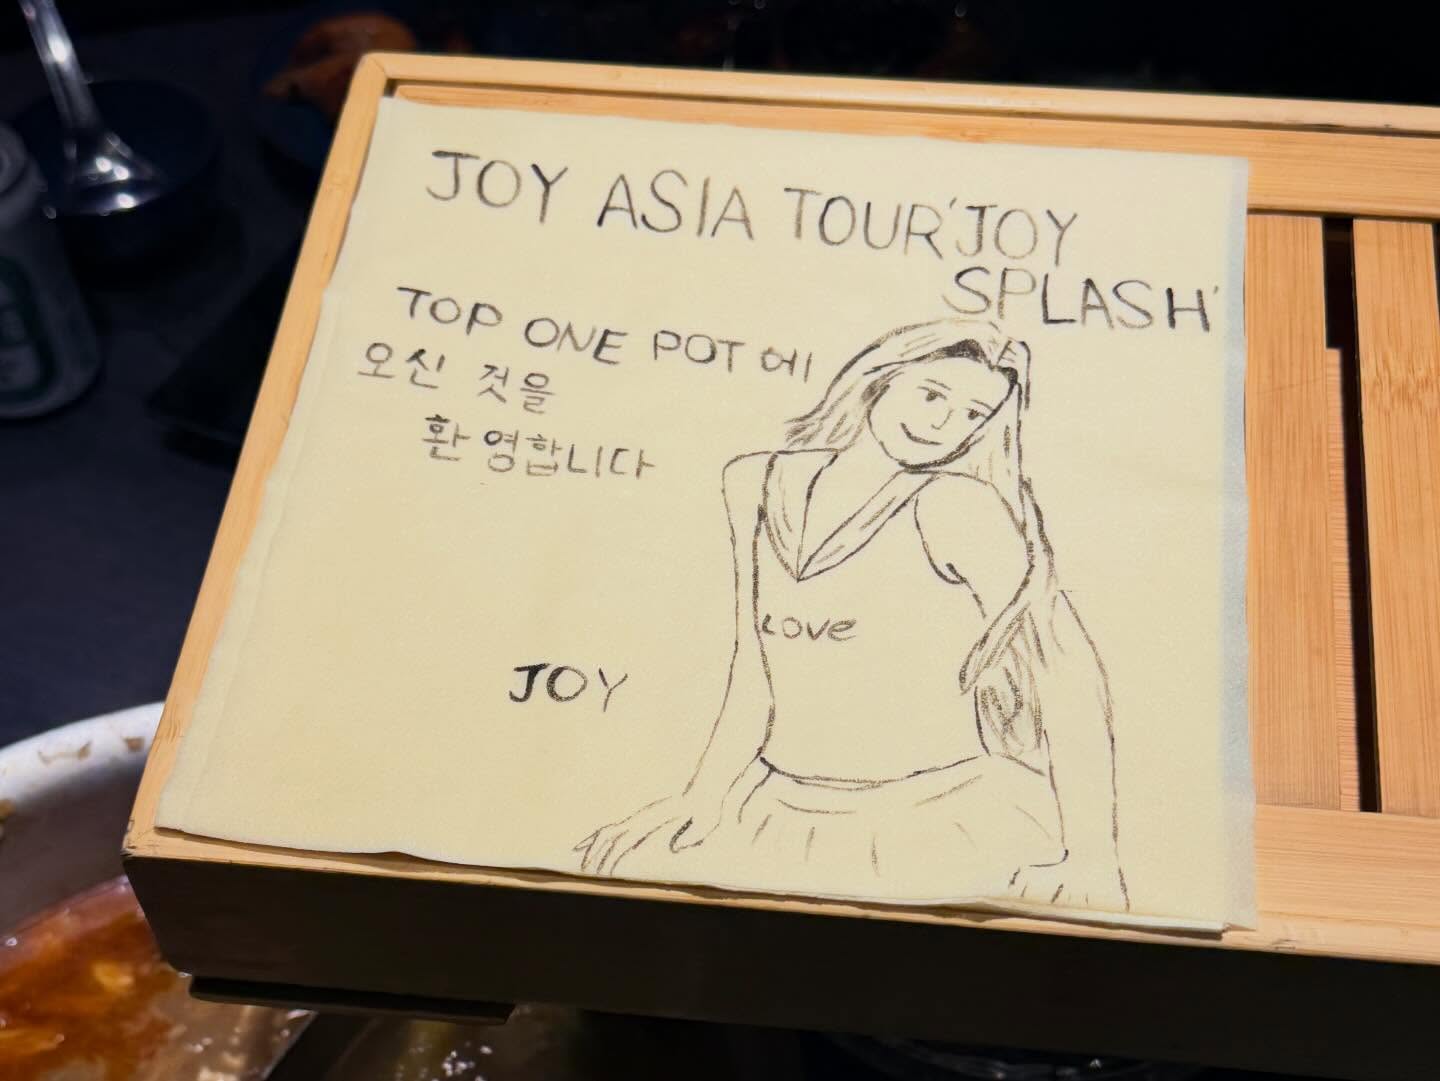 JOY ASIA TOUR 'JOY
SPLASH'
TOP ONE POT 에
오신 것을
환영합니다
LOVE
JOY